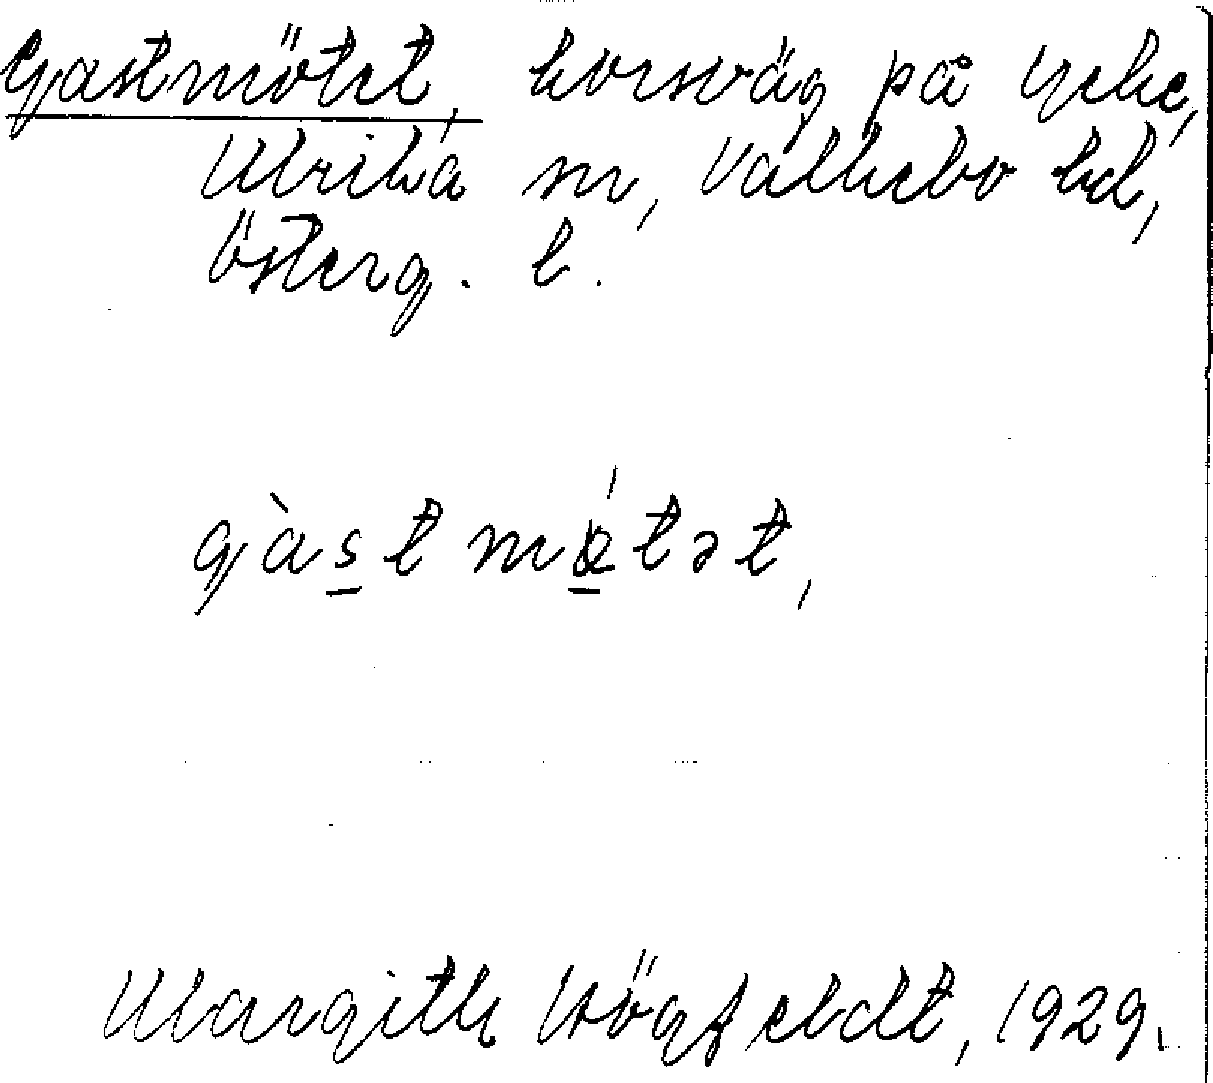 Gastmötet, korsväg på Ycke,
Ulrika sn, Valkebo hd,
Österg. l.
gàstmǿtət,
Margith Högfeldt, 1929.